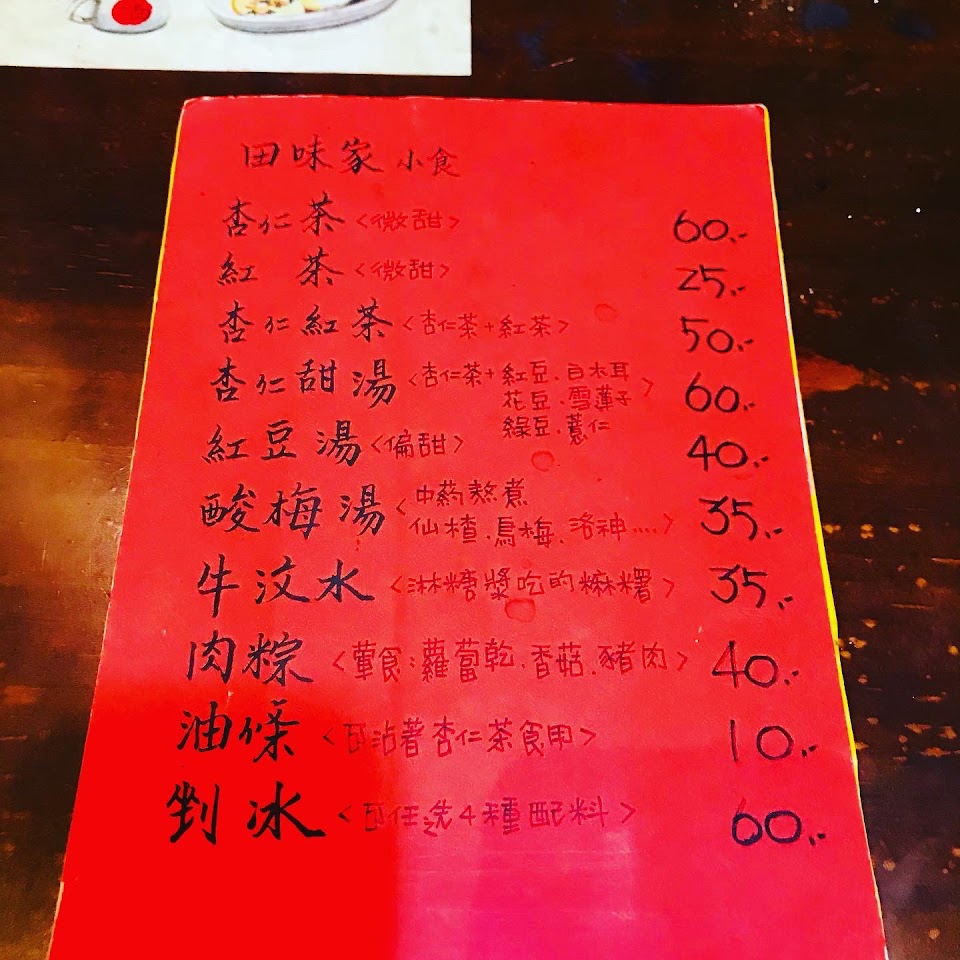 田味家 小食
杏仁茶 <微甜> 60.-
紅 茶 <微甜> 25.-
杏仁紅茶 <杏仁茶+紅茶> 50.-
杏仁甜湯 <杏仁茶+紅豆.白木耳 60.-
花豆.雪蓮子>
綠豆.薏仁
紅豆湯 <偏甜> 40.-
酸梅湯 <中药熬煮 35.-
仙楂.烏梅.洛神....>
牛汶水 <淋糖漿吃的麻糬> 35.-
肉粽 <葷食:蘿蔔乾.香菇.豬肉> 40.-
油條 <可沾著杏仁茶食用> 10.-
剉冰 <可任选4種配料> 60.-